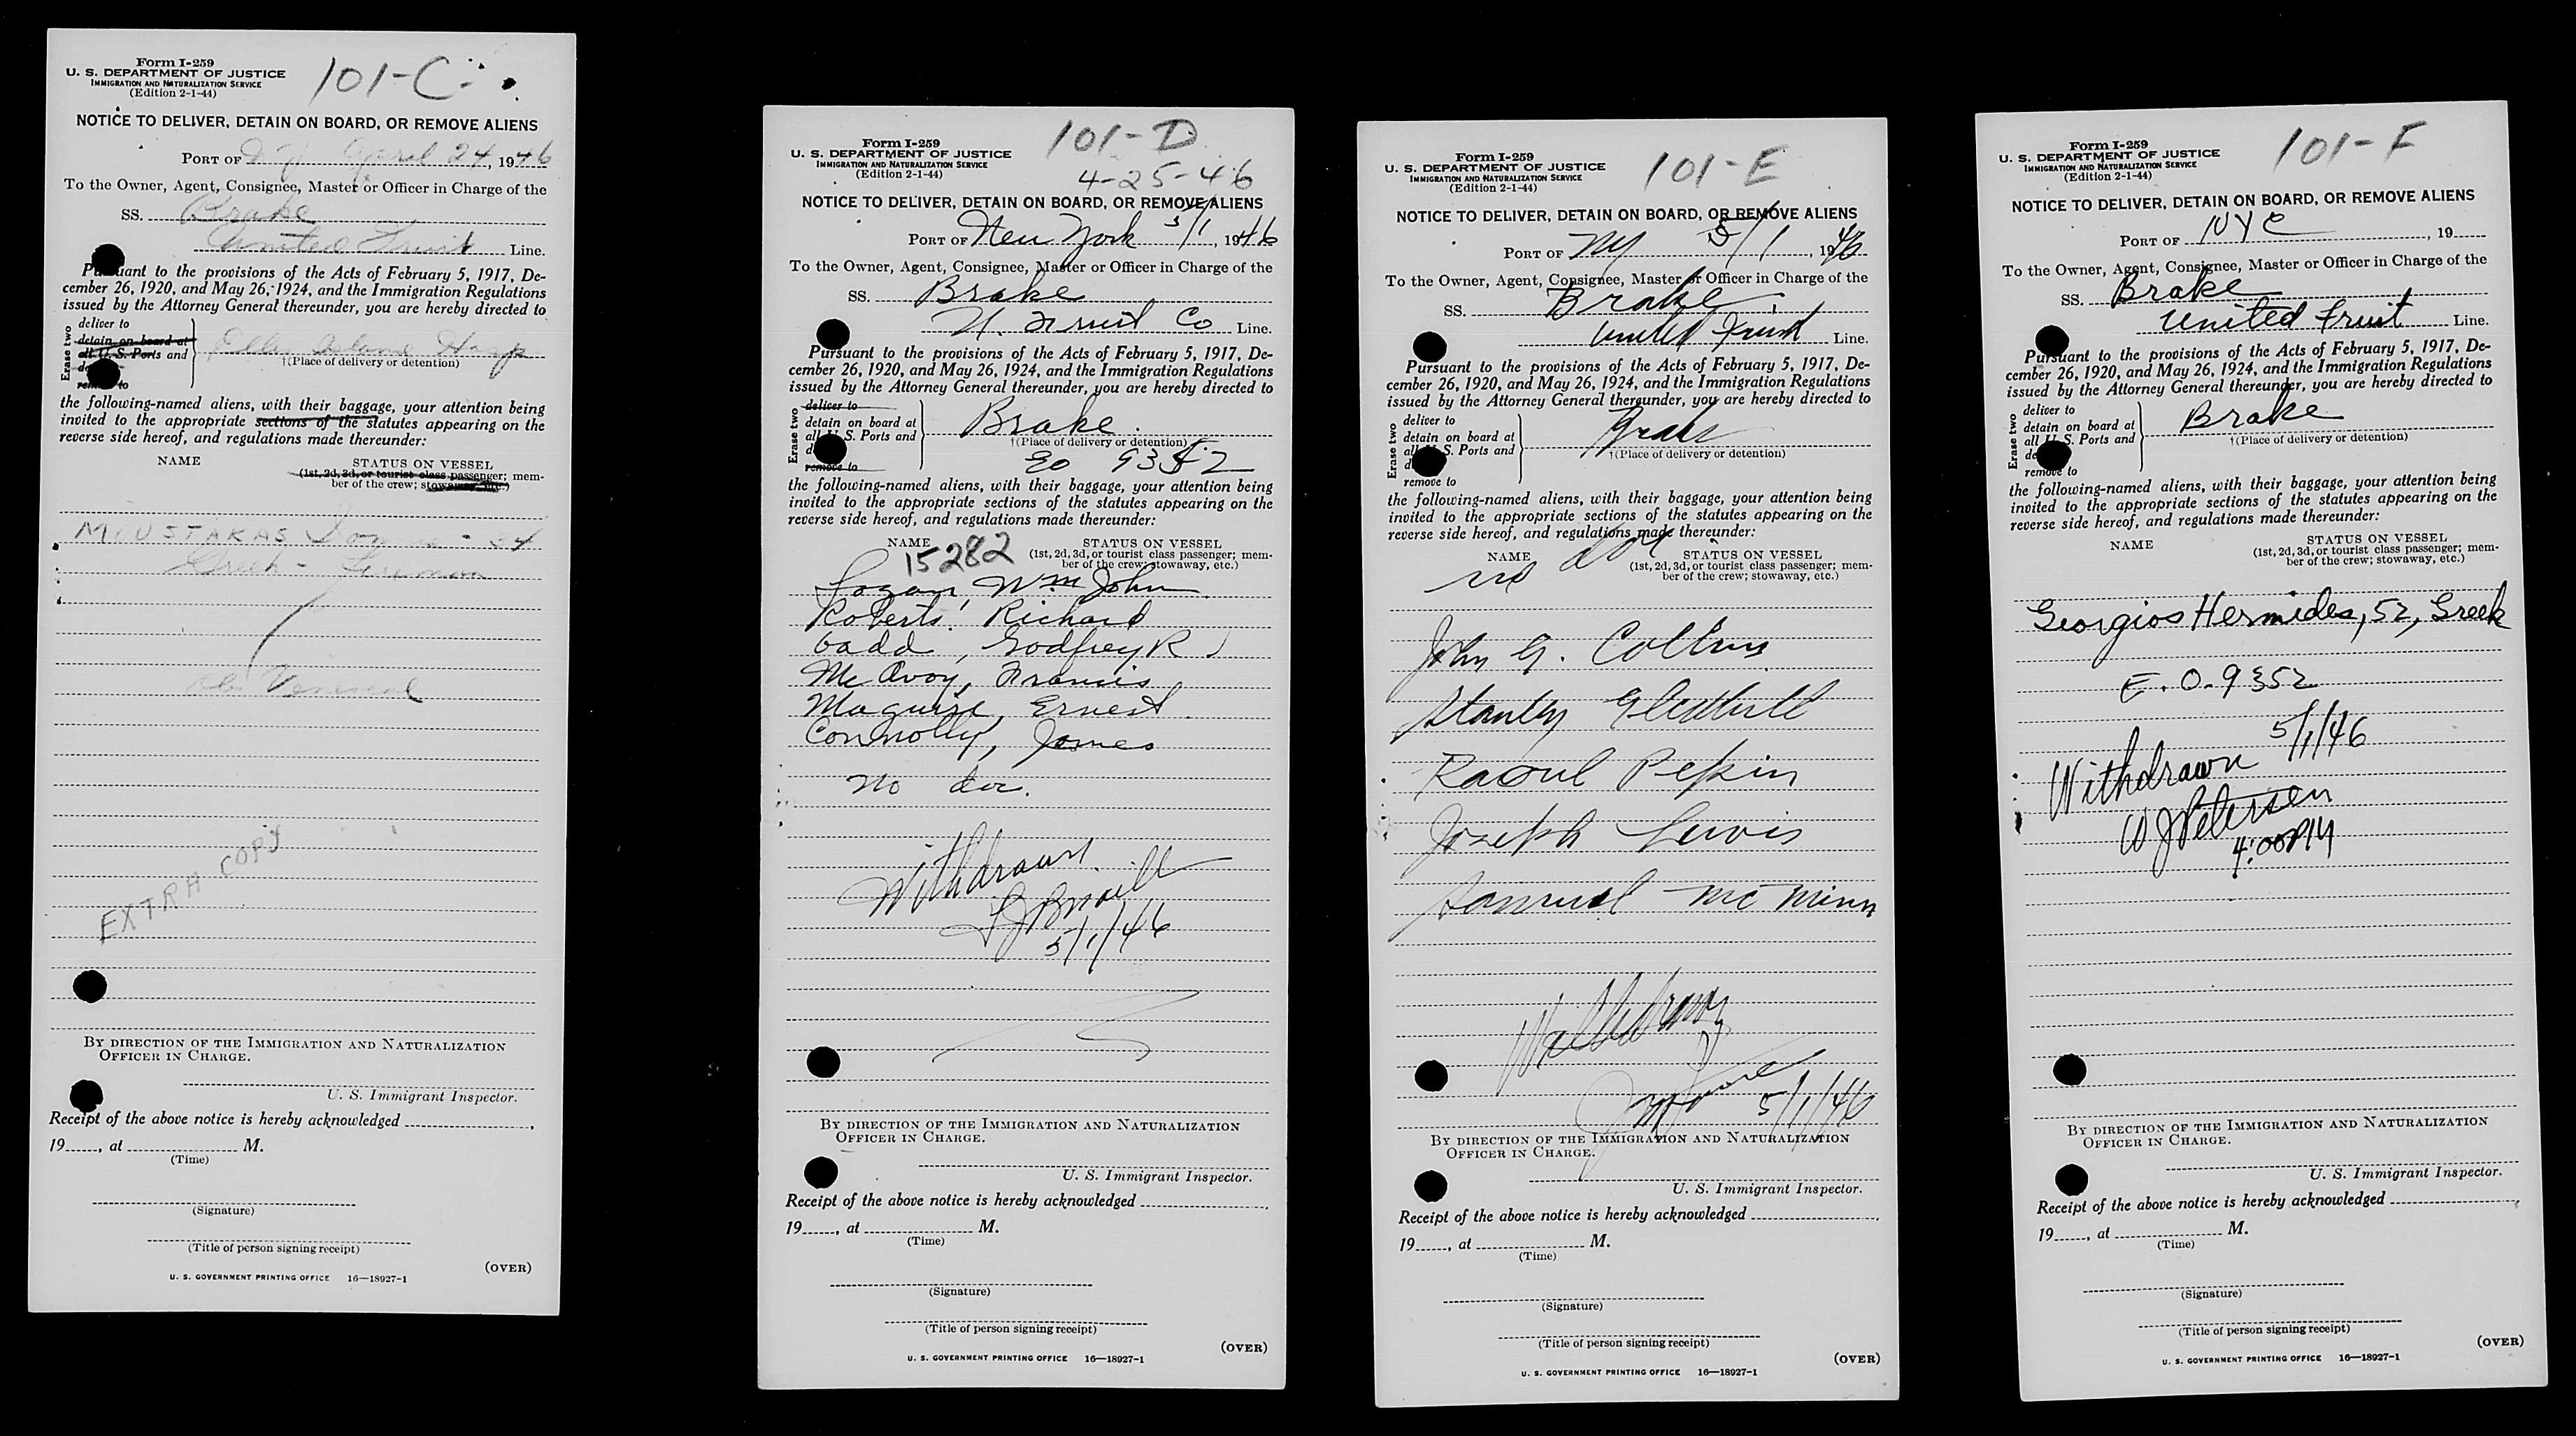 Form I-259
U. S. DEPARTMENT OF JUSTICE
IMMIGRATION AND NATURALIZATION SERVICE
(Edition 2-1-44)
101-C
NOTICE TO DELIVER, DETAIN ON BOARD, OR REMOVE ALIENS
PORT OF April 24, 1946
To the Owner, Agent, Consignee, Master or Officer in Charge of the
SS. Brake
United Fruit Line.
Pursuant to the provisions of the Acts of February 5, 1917, De-
cember 26, 1920, and May 26, 1924, and the Immigration Regulations
issued by the Attorney General thereunder, you are hereby directed to
Erase two
deliver to
detain on board at
all U. S. Ports and
remove to
Ellis Island Hosp
†(Place of delivery or detention)
the following-named aliens, with their baggage, your attention being
invited to the appropriate sections of the statutes appearing on the
reverse side hereof, and regulations made thereunder:
NAME STATUS ON VESSEL
(1st, 2d, 3d, or tourist class passenger; mem-
ber of the crew; stowaway, etc.)
MOUSTAKAS
Greek - Fireman
Venereal
EXTRA COPY
BY DIRECTION OF THE IMMIGRATION AND NATURALIZATION
OFFICER IN CHARGE.
U. S. Immigrant Inspector.
Receipt of the above notice is hereby acknowledged
19, at M.
(Time)
(Signature)
(Title of person signing receipt)
(OVER)
U. S. GOVERNMENT PRINTING OFFICE 16—18927-1
Form I-259
U. S. DEPARTMENT OF JUSTICE
IMMIGRATION AND NATURALIZATION SERVICE
(Edition 2-1-44)
101-D
4-25-46
NOTICE TO DELIVER, DETAIN ON BOARD, OR REMOVE ALIENS
PORT OF New York 5/1, 1946
To the Owner, Agent, Consignee, Master or Officer in Charge of the
SS. Brake
U. Fruit Co Line.
Pursuant to the provisions of the Acts of February 5, 1917, De-
cember 26, 1920, and May 26, 1924, and the Immigration Regulations
issued by the Attorney General thereunder, you are hereby directed to
Erase two
deliver to
detain on board at
all U. S. Ports and
remove to
Brake
†(Place of delivery or detention)
EO 9352
the following-named aliens, with their baggage, your attention being
invited to the appropriate sections of the statutes appearing on the
reverse side hereof, and regulations made thereunder:
NAME STATUS ON VESSEL
15282
(1st, 2d, 3d, or tourist class passenger; mem-
ber of the crew; stowaway, etc.)
Logan, Wm John
Roberts, Richard
Gadd, Godfrey R
McAvoy, Francis
Maguire, Ernest
Connolly, James
No doc.
Withdrawn
5/1/46
BY DIRECTION OF THE IMMIGRATION AND NATURALIZATION
OFFICER IN CHARGE.
U. S. Immigrant Inspector.
Receipt of the above notice is hereby acknowledged
19, at M.
(Time)
(Signature)
(Title of person signing receipt)
(OVER)
U. S. GOVERNMENT PRINTING OFFICE 16—18927-1
Form I-259
U. S. DEPARTMENT OF JUSTICE
IMMIGRATION AND NATURALIZATION SERVICE
(Edition 2-1-44)
101-E
NOTICE TO DELIVER, DETAIN ON BOARD, OR REMOVE ALIENS
PORT OF NY 5/1, 1946
To the Owner, Agent, Consignee, Master or Officer in Charge of the
SS. Brake
United Fruit Line.
Pursuant to the provisions of the Acts of February 5, 1917, De-
cember 26, 1920, and May 26, 1924, and the Immigration Regulations
issued by the Attorney General thereunder, you are hereby directed to
Erase two
deliver to
detain on board at
all U. S. Ports and
remove to
Brake
†(Place of delivery or detention)
the following-named aliens, with their baggage, your attention being
invited to the appropriate sections of the statutes appearing on the
reverse side hereof, and regulations made thereunder:
NAME STATUS ON VESSEL
no doc
(1st, 2d, 3d, or tourist class passenger; mem-
ber of the crew; stowaway, etc.)
John G. Collins
Stanley Gledhill
Raoul Pepin
Joseph Lewis
Samuel McMinn
Withdrawn
5/1/46
BY DIRECTION OF THE IMMIGRATION AND NATURALIZATION
OFFICER IN CHARGE.
U. S. Immigrant Inspector.
Receipt of the above notice is hereby acknowledged
19, at M.
(Time)
(Signature)
(Title of person signing receipt)
(OVER)
U. S. GOVERNMENT PRINTING OFFICE 16—18927-1
Form I-259
U. S. DEPARTMENT OF JUSTICE
IMMIGRATION AND NATURALIZATION SERVICE
(Edition 2-1-44)
101-F
NOTICE TO DELIVER, DETAIN ON BOARD, OR REMOVE ALIENS
PORT OF NYC, 19
To the Owner, Agent, Consignee, Master or Officer in Charge of the
SS. Brake
United Fruit Line.
Pursuant to the provisions of the Acts of February 5, 1917, De-
cember 26, 1920, and May 26, 1924, and the Immigration Regulations
issued by the Attorney General thereunder, you are hereby directed to
Erase two
deliver to
detain on board at
all U. S. Ports and
remove to
Brake
†(Place of delivery or detention)
the following-named aliens, with their baggage, your attention being
invited to the appropriate sections of the statutes appearing on the
reverse side hereof, and regulations made thereunder:
NAME STATUS ON VESSEL
(1st, 2d, 3d, or tourist class passenger; mem-
ber of the crew; stowaway, etc.)
Georgios Hermides, 52, Greek
E.O. 9352
Withdrawn 5/1/46
W J Petersen
4:00PM
BY DIRECTION OF THE IMMIGRATION AND NATURALIZATION
OFFICER IN CHARGE.
U. S. Immigrant Inspector.
Receipt of the above notice is hereby acknowledged
19, at M.
(Time)
(Signature)
(Title of person signing receipt)
(OVER)
U. S. GOVERNMENT PRINTING OFFICE 16—18927-1